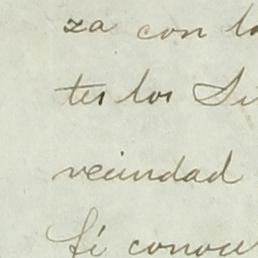 za con lo
tes los Si
vecindad
fé conoce